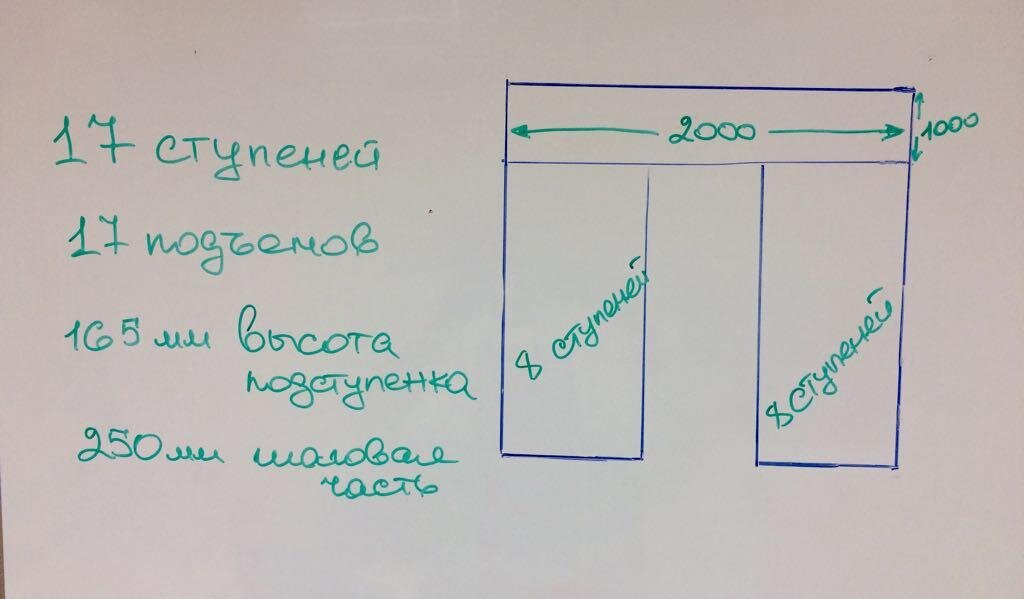 17 ступеней
17 подъемов
165 мм высота
подступенка
250 мм шаговая
часть
2000
1000
8 ступеней
8 ступеней